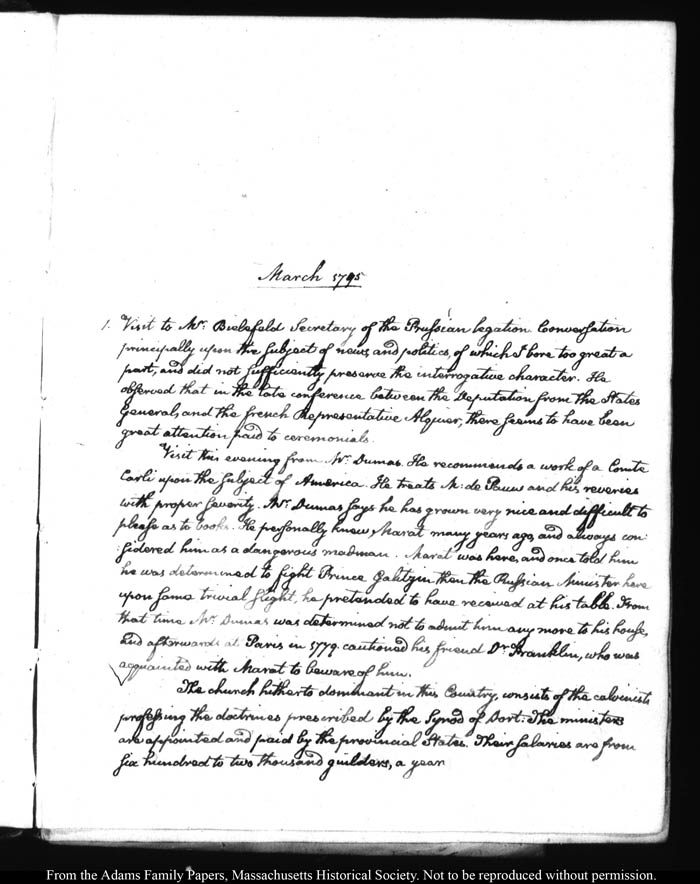 March 1795
1. Visit to Mr. Bielefeld Secretary of the Prussian legation. Conversation
principally upon the subject of news, and politics, of which I bore too great a
part, and did not sufficiently preserve the interrogative character. He
observed that in the late conference between the Deputation from the States
General, and the french Representative Alquier, there seems to have been
great attention paid to ceremonials.
Visit this evening from Mr. Dumas. He recommends a work of a Comte
Carli upon the subject of America. He treats M: de Pauw and his reveries
with proper severity. Mr. Dumas says he has grown very nice and difficult to
please as to books. He personally knew Marat many years ago, and always con:
sidered him as a dangerous madman. Marat was here, and once told him
he was determined to fight Prince Galitzin then the Russian Minister here
upon some trivial slight, he pretended to have received at his table. From
that time Mr. Dumas was determined not to admit him any more to his house,
and afterwards at Paris in 1779. cautioned his friend Dr. Franklin, who was
acquainted with Marat to beware of him.
The church hitherto dominant in this Country, consists of the calvinists
professing the doctrines prescribed by the Synod of Dort. The ministers
are appointed and paid by the provincial States. Their salaries are from
six hundred to two thousand guilders, a year
From the Adams Family Papers, Massachusetts Historical Society. Not to be reproduced without permission.